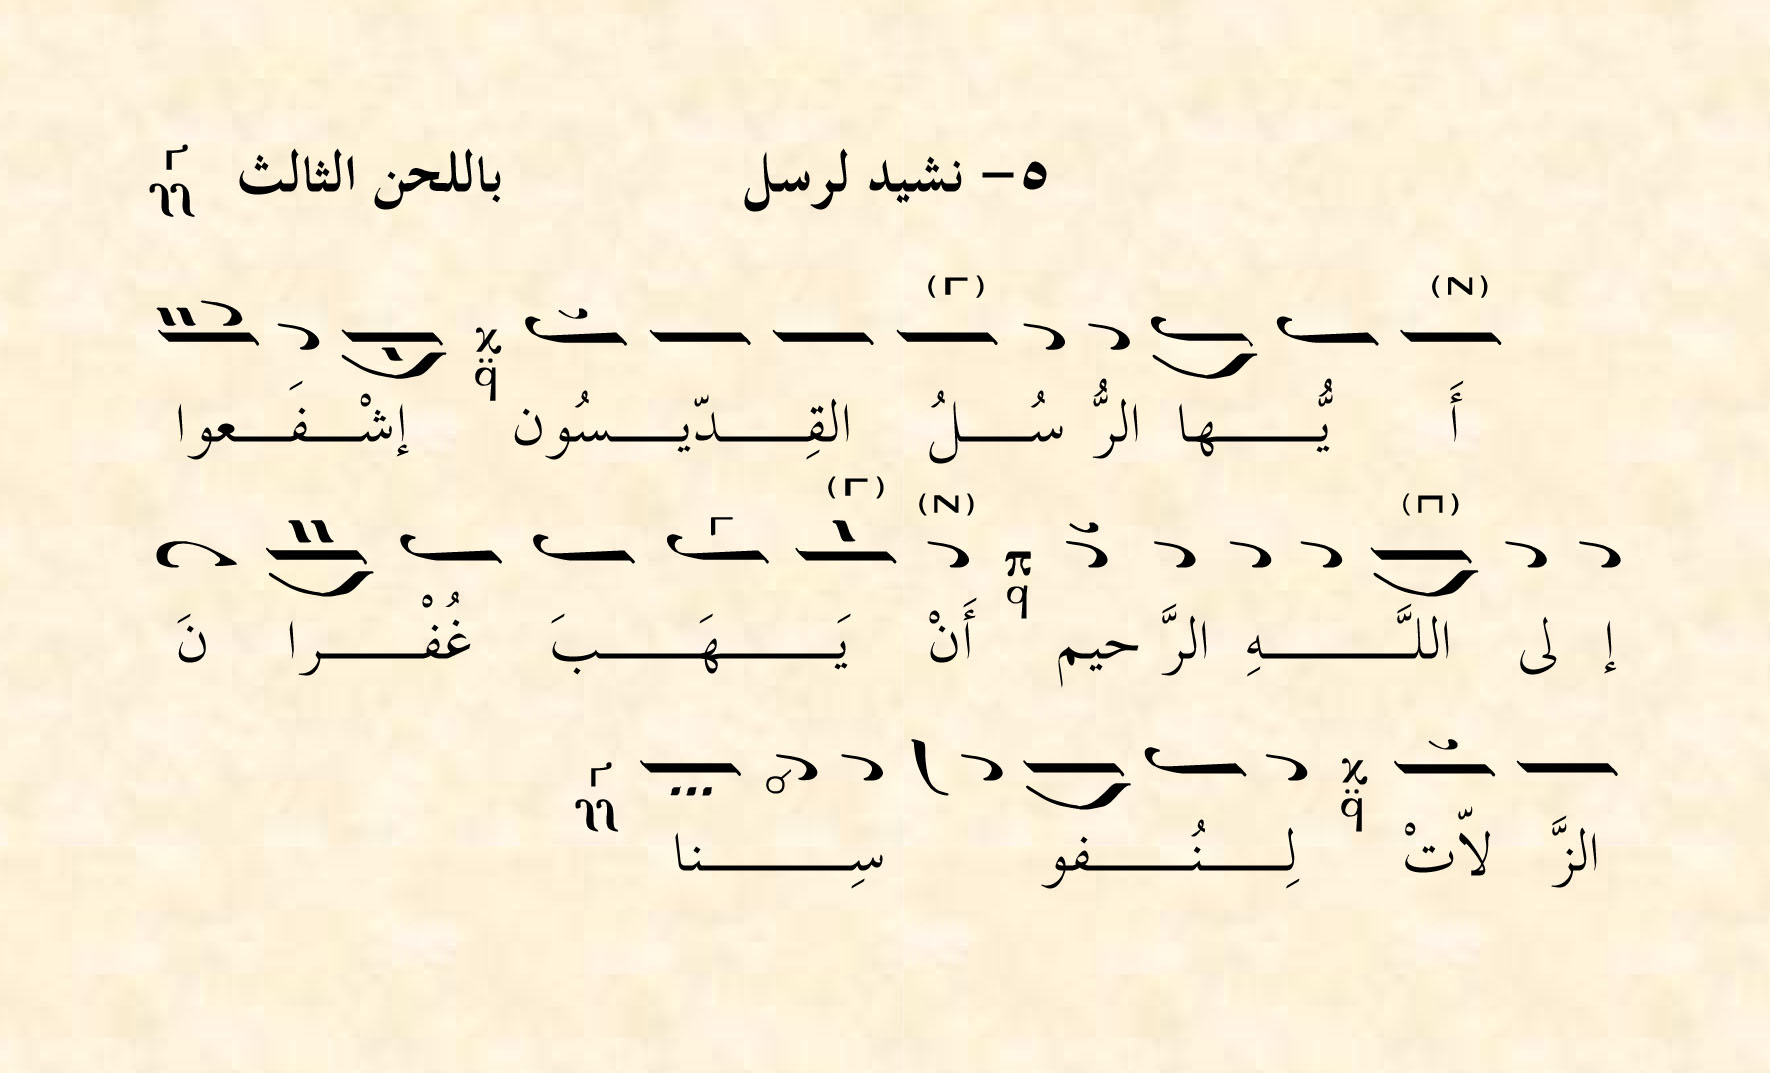 ٥– نشيد لرسل باللحن الثالث
(Ν) (Γ)
أَ يُّـــها الرُّ سُـــلُ القِـــدّيـــسُون إشْـــفَـــعوا
(Π) (Ν) (Γ)
إ لى اللـــَّـــهِ الرَّ حيم أَنْ يَـــهَـــبَ غُفْـــرا نَ
الزَّ لاّتْ لِـــنُـــفو سِـــنا